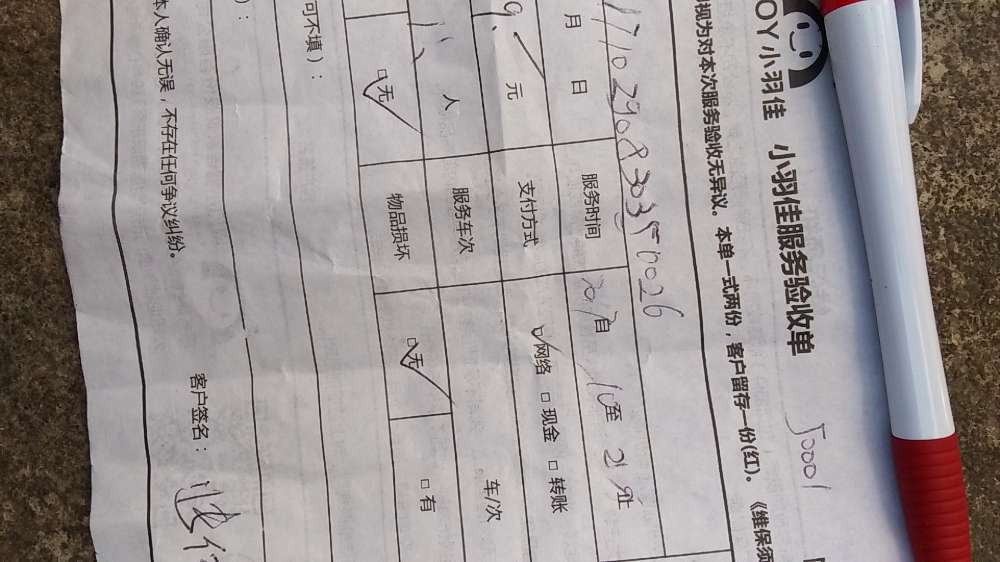 OY小羽佳 小羽佳服务验收单
50001
视为对本次服务验收无异议。本单一式两份，客户留存一份(红)。《维保须
1710290830350026
月 日 服务时间 自 至 21 止
9 元 支付方式 ☑网络 □ 现金 □ 转账
人 服务车次 车/次
☑无 物品损坏 ☑无 □ 有
可不填）：
）：
本人确认无误，不存在任何争议纠纷。 客户签名：